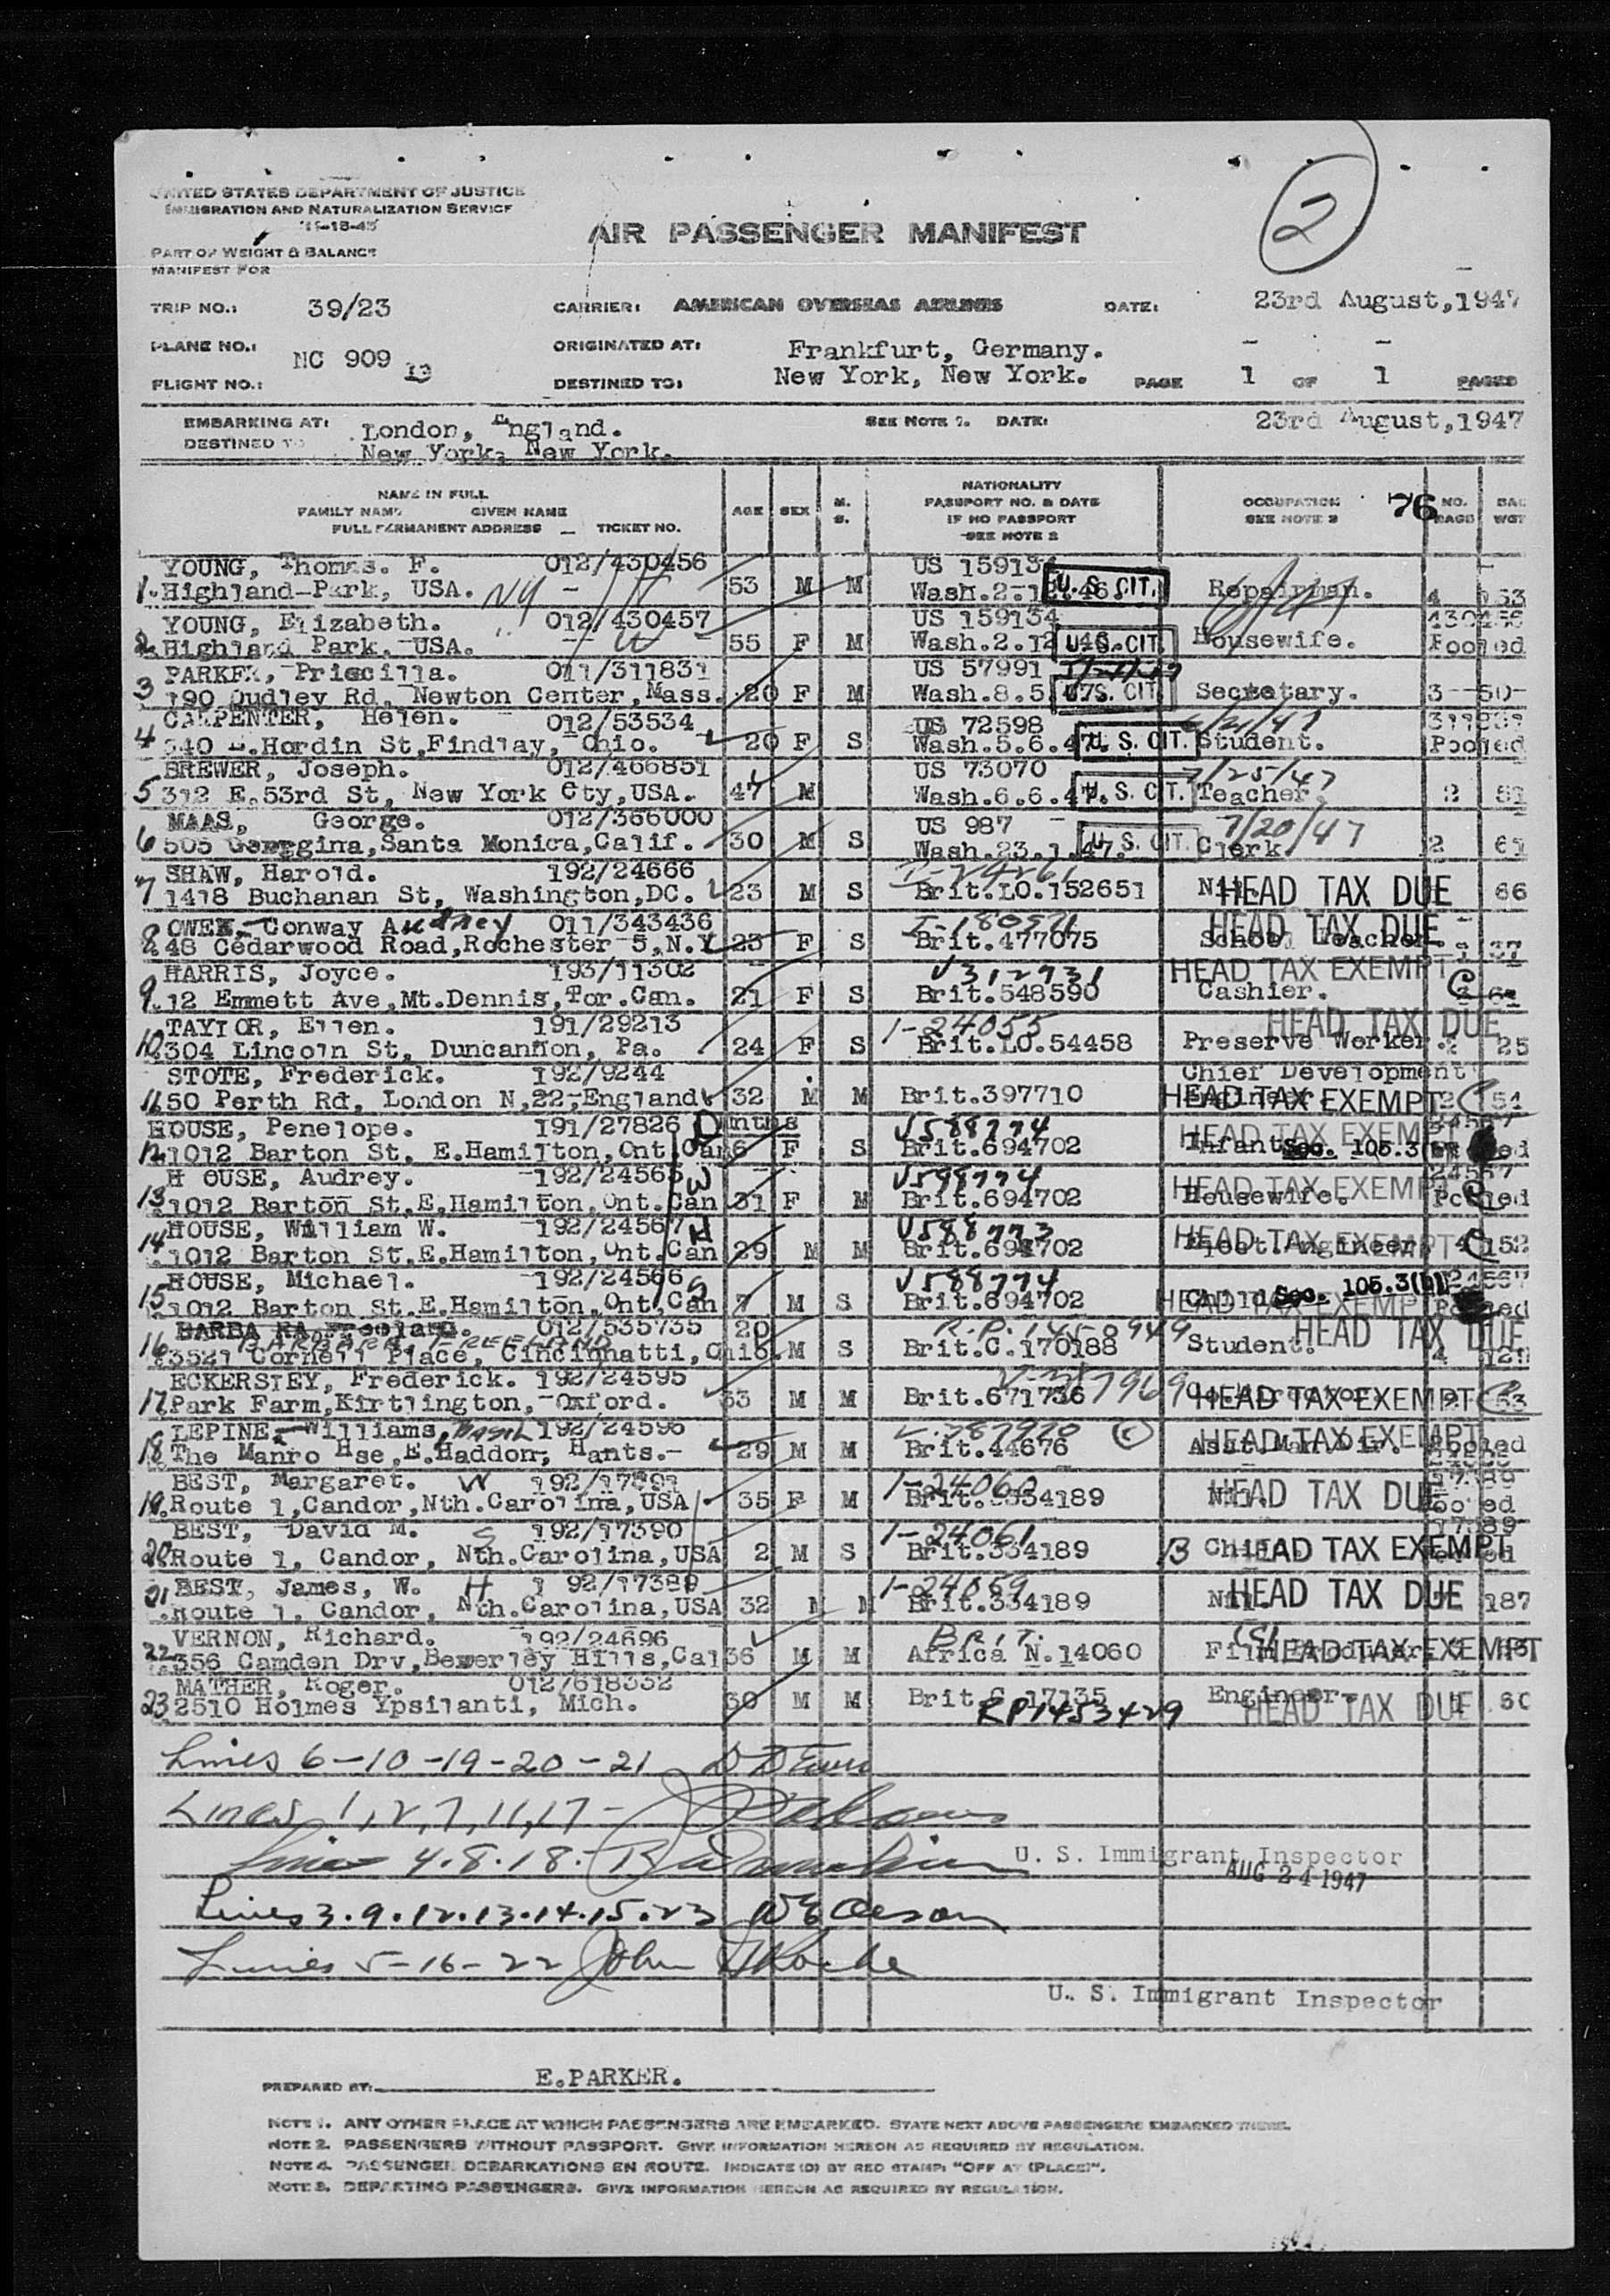 UNITED STATES DEPARTMENT OF JUSTICE
IMMIGRATION AND NATURALIZATION SERVICE
11-18-45
PART OF WEIGHT & BALANCE
MANIFEST FOR
AIR PASSENGER MANIFEST
2
TRIP NO.: 39/23 CARRIER: AMERICAN OVERSEAS AIRLINES DATE: 23rd August, 1947
PLANE NO.: NC 909 13 ORIGINATED AT: Frankfurt, Germany. - -
FLIGHT NO.: DESTINED TO: New York, New York. PAGE 1 OF 1 PAGES
EMBARKING AT: London, England. SEE NOTE 1. DATE: 23rd August, 1947
DESTINED TO New York, New York.
NAME IN FULL
FAMILY NAME GIVEN NAME
FULL PERMANENT ADDRESS - TICKET NO.
AGE SEX M. S.
NATIONALITY
PASSPORT NO. & DATE
IF NO PASSPORT
SEE NOTE 2
OCCUPATION
SEE NOTE 3
76 NO. BAGS BAG WGT
YOUNG, Thomas. F. 012/430456 US 159134
1. Highland-Park, USA. NY - H 53 M M Wash.2-12-46. U.S. CIT. Repairman. 4 153
YOUNG, Elizabeth. 012/430457 US 159134 430456
2. Highland Park. USA. " W 55 F M Wash.2.12.46. U.S. CIT. Housewife. Pooled
PARKER, Priscilla. 011/311831 US 57991
3 190 Dudley Rd, Newton Center, Mass. 20 F M Wash.8.5.47 U.S. CIT. Secretary. 3 50
CARPENTER, Helen. 012/53534 US 72598 6/21/47 311831
4 340 E.Hordin St, Findlay, Ohio. 20 F S Wash.5.6.47. U.S. CIT. Student. Pooled
BREWER, Joseph. 012/466851 US 73070 7/25/47
5 312 E.53rd St, New York Cty, USA. 47 M Wash.6.6.47. U.S. CIT. Teacher. 2 51
MAAS, George. 012/366000 US 987 7/20/47
6 505 Georgina, Santa Monica, Calif. 30 M S Wash.23.1.47. U.S. CIT. Clerk. 2 61
SHAW, Harold. 192/24666 I-24261
7 1418 Buchanan St, Washington, DC. 23 M S Brit.LO.152651 Nil. HEAD TAX DUE 66
OWEN, Conway Audrey 011/343436 I-180571 HEAD TAX DUE
8 48 Cedarwood Road, Rochester 5, N.Y 23 F S Brit.477075 School Teacher. 37
HARRIS, Joyce. 193/11302 V312931 HEAD TAX EXEMPT C
9. 12 Emmett Ave, Mt.Dennis, Tor.Can. 21 F S Brit.548590 Cashier.
TAYLOR, Ellen. 191/29213 1-24055 HEAD TAX DUE
10. 304 Lincoln St, Duncannon, Pa. 24 F S Brit.LO.54458 Preserve Worker. 25
STOTE, Frederick. 192/9244 Chief Development
11. 50 Perth Rd, London N, 22, England 32 M M Brit.397710 Engineer HEAD TAX EXEMPT 2 54
HOUSE, Penelope. 191/27826 D mnths V588774 HEAD TAX EXEMPT 24567
12. 1012 Barton St, E.Hamilton, Ont.Can 6 F S Brit.694702 Infant Sec. 105.3(h)
H OUSE, Audrey. 192/24565 W V588774 HEAD TAX EXEMPT 24567
13. 1012 Barton St.E.Hamilton, Ont.Can 31 F M Brit.694702 Housewife. Pooled
HOUSE, William W. 192/24567 H V588773 HEAD TAX EXEMPT
14. 1012 Barton St.E.Hamilton, Ont.Can 29 M M Brit.694702 Engineer. C 152
HOUSE, Michael. 192/24566 S V588774 Sec. 105.3(h) 24567
15. 1012 Barton St.E.Hamilton, Ont, Can 7 M S Brit.694702 Child HEAD TAX EXEMPT
BARBA RA Freeland. 012/535735 20 R.P. 145-0949 HEAD TAX DUE
BARBARA, FREELAND
16. 3521 Cornell Place, Cincinnatti, Ohio. M S Brit.C.170188 Student. 4
ECKERSLEY, Frederick. 192/24595
17. Park Farm, Kirtlington, Oxford. 33 M M Brit.671736 HEAD TAX EXEMPT 53
LEPINE, Williams, Basil 192/24596 V-387970 (C) HEAD TAX EXEMPT
18. The Manro Hse, E.Haddon, Hants. 29 M M Brit.44676 Pooled
BEST, Margaret. W 192/17391 1-24060 17389
19. Route 1, Candor, Nth.Carolina, USA 35 F M Brit.334189 Nil. HEAD TAX DUE Pooled
BEST, David M. S 192/17390 1-24061 17389
20. Route 1, Candor, Nth.Carolina, USA 2 M S Brit.334189 B Child HEAD TAX EXEMPT
BEST, James, W. H 1 92/17389 1-24059
21. Route 1, Candor, Nth.Carolina, USA 32 M M Brit.334189 Nil. HEAD TAX DUE 187
VERNON, Richard. 192/24696 BRIT.
22. 356 Camden Drv, Beverley Hills, Cal 36 M M Africa N.14060 Film HEAD TAX EXEMPT
MATHER, Roger. 012/618332
23 2510 Holmes Ypsilanti, Mich. 30 M M Brit.C.17135 Engineer. HEAD TAX DUE 60
RP1453429
Lines 6-10-19-20-21
Lines 1, 2, 7, 11, 17-
Lines 4.8.18.
U. S. Immigrant Inspector
AUG 24 1947
Lines 3.9.12.13.14.15.23
Lines 5-16-22 John
U. S. Immigrant Inspector
PREPARED BY: E.PARKER.
NOTE 1. ANY OTHER PLACE AT WHICH PASSENGERS ARE EMBARKED. STATE NEXT ABOVE PASSENGERS EMBARKED THERE.
NOTE 2. PASSENGERS WITHOUT PASSPORT. GIVE INFORMATION HEREON AS REQUIRED BY REGULATION.
NOTE 4. PASSENGER DEBARKATIONS EN ROUTE. INDICATE (D) BY RED STAMP: "OFF AT (PLACE)".
NOTE 5. DEPARTING PASSENGERS. GIVE INFORMATION HEREON AS REQUIRED BY REGULATION.